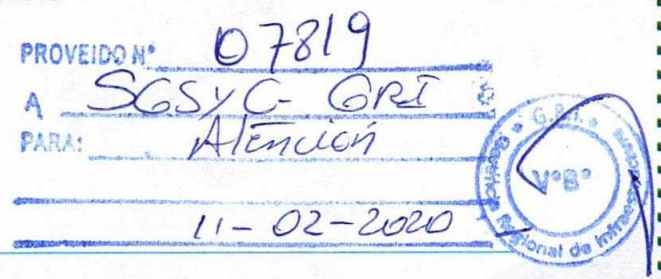 PROVEIDO N° 07819
A SGSyC- GRI
PARA: Atención
11-02-2020
G.R.I.
Gerencia Regional de Infraestructura
V°B°